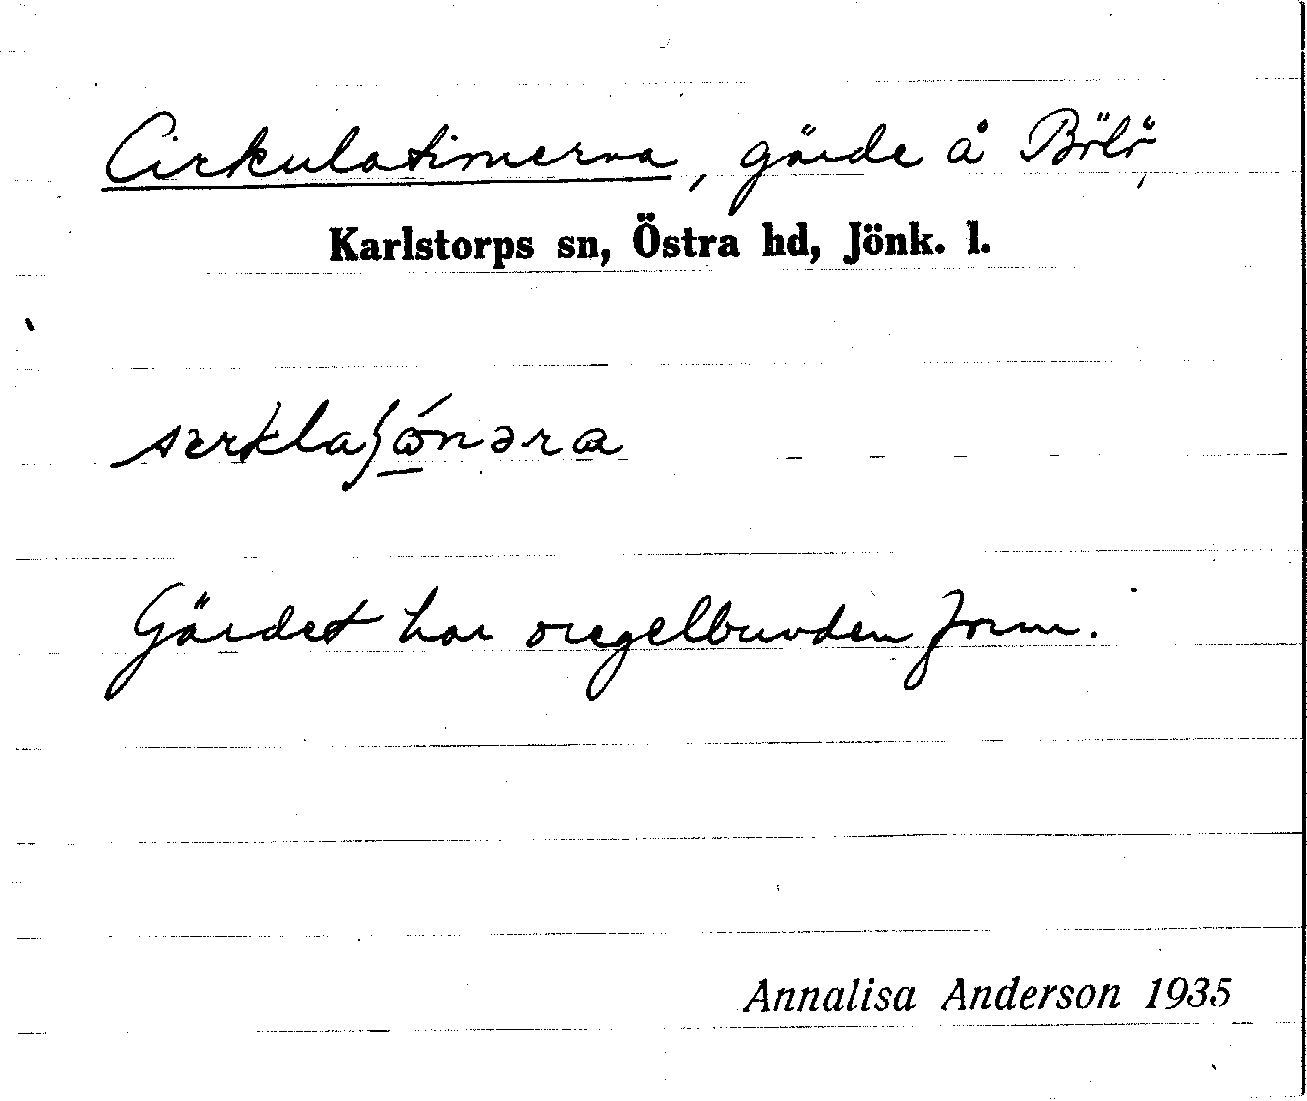 Cirkulationerna, gärde å Bölö,
Karlstorps sn, Östra hd, Jönk. l.
Gärdet har oregelbunden form.
Annalisa Anderson 1935